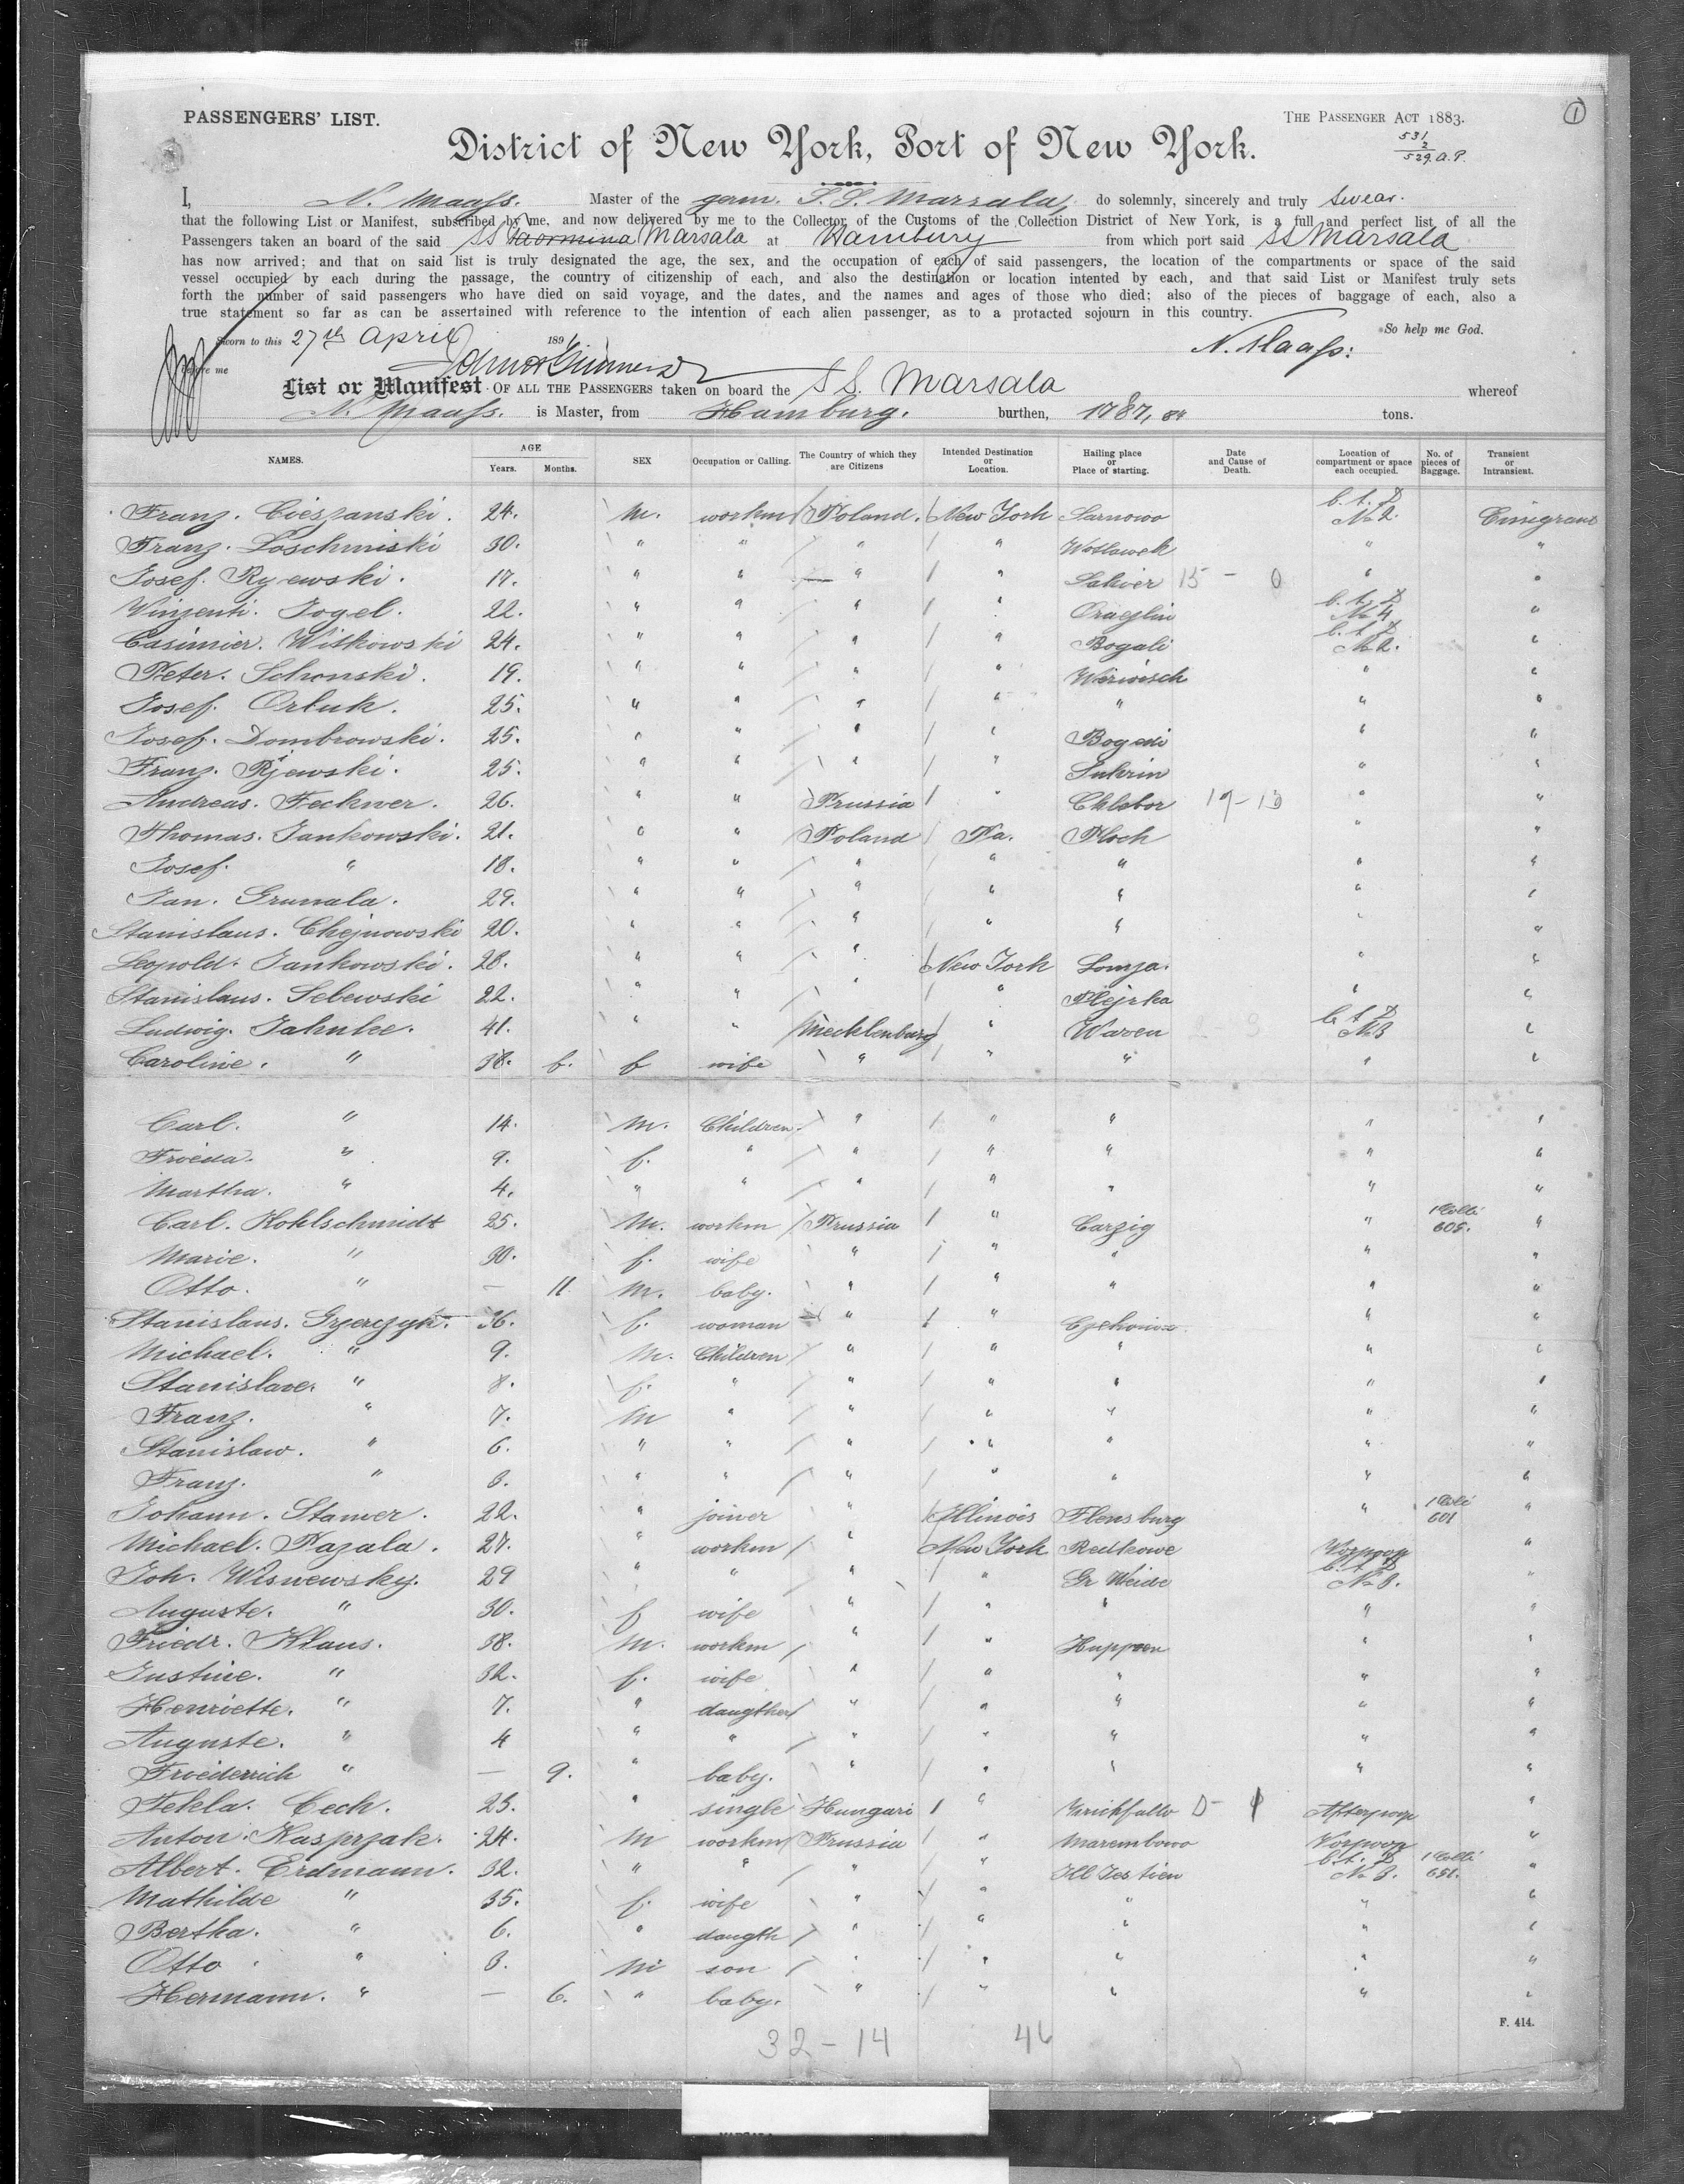 PASSENGERS' LIST.
THE PASSENGER ACT 1883.
1
531
2
529. A.P.
District of New York, Port of New York.
I, N. Maass. Master of the germ. S.S. Marsala, do solemnly, sincerely and truly swear.
that the following List or Manifest, subscribed by me, and now delivered by me to the Collector of the Customs of the Collection District of New York, is a full and perfect list of all the
Passengers taken an board of the said SS Taormina Marsala at Hamburg from which port said SS Marsala
has now arrived; and that on said list is truly designated the age, the sex, and the occupation of each of said passengers, the location of the compartments or space of the said
vessel occupied by each during the passage, the country of citizenship of each, and also the destination or location intented by each, and that said List or Manifest truly sets
forth the number of said passengers who have died on said voyage, and the dates, and the names and ages of those who died; also of the pieces of baggage of each, also a
true statement so far as can be ascertained with reference to the intention of each alien passenger, as to a protacted sojourn in this country.
So help me God.
Sworn to this 27th April 1891
N. Maass.
before me
List or Manifest OF ALL THE PASSENGERS taken on board the S S. Marsala whereof
N. Maass. is Master, from Hamburg. burthen, 1787,84 tons.
NAMES. AGE Years. Months. SEX Occupation or Calling. The Country of which they are Citizens Intended Destination or Location. Hailing place or Place of starting. Date and Cause of Death. Location of compartment or space each occupied. No. of pieces of Baggage. Transient or Intransient.
Franz. Cieszanski. 24. M. workm Poland. New York Sarnowo b. t. D No 2. Emigrant
Franz. Loschmiski 30. " " " " Wotlawek " "
Josef. Ryewski. 17. " " " " Sakier 15 - 0 " "
Winzenti. Jogel. 22. " " " " b. t. D No 4 "
Casimier. Witkowski 24. " " " " Bogali b. t. D No 2. "
Peter. Schonski. 19. " " " " Weriwisch " "
Josef. Orluk. 25. " " " " " " "
Josef. Dombrowski. 25. " " " " " "
Franz. Rjewski. 25. " " " " Suhrin " "
Andreas. Feckner. 26. " " Prussia " Chlebor 19-13 " "
Thomas. Jankowski. 21. " " Poland Pa. Plock " "
Josef. " 18. " " " " " " "
Jan. Grunala. 29. " " " " " " "
Stanislaus. Chejnowski 20. " " " " " " "
Leopold. Jankowski. 28. " " " New York Lomza. " "
Stanislaus. Selewski 22. " " " " Plejrka " "
Ludwig. Jahnke. 41. " " Mecklenburg " Waren b. t. D No 3 "
Caroline. " 38. f. f wife " " " " "
Carl. " 14. M. Children. " " " " "
Frieda. " 9. f. " " " " " "
Martha. " 4. " " " " " " "
Carl. Kohlschmidt 25. M. workm Prussia " Carzig " 1 Colli 608. "
Marie. " 30. f. wife " " " " "
Otto. " — 11 M. baby. " " " " "
Stanislaus. Grzerczyk. 36. f. woman " " " "
Michael. " 9. M. Children " " " " "
Stanislave. " 8. f. " " " " " "
Franz. " 7. M " " " " " "
Stanislaw. " 6. " " " " " " "
Franz. " 3. " " " " " " "
Johann. Stamer. 22. " joiner " Illinois Flensburg " 1 Colli 601 "
Michael. Kazala. 27. " workm " New York Redkowe Vorpoop "
Joh. Wisnewsky. 29 " " " " Gr Weide b. t. D No 3. "
Auguste. " 30. f wife " " " " "
Friedr. Klaus. 38. M. workm " " Huppoen " "
Justine. " 32. f. wife " " " " "
Henriette. " 7. " daugther " " " " "
Auguste. " 4 " " " " " " "
Friederich " — 9. " baby. " " " " "
Tekla. Cech. 25. " single Hungari " Afterpoop "
Anton. Kasprzak. 24. M workm Prussia " Marembowo Vorpoop "
Albert. Erdmann. 32. " " " " b. t. D No 3. 1 Colli 651. "
Mathilde " 35. f. wife " " " " "
Bertha. " 6. " daugth " " " " "
Otto " 3. M son " " " " "
Hermann. " — 6. " baby. " " " " "
F. 414.
32-14 46